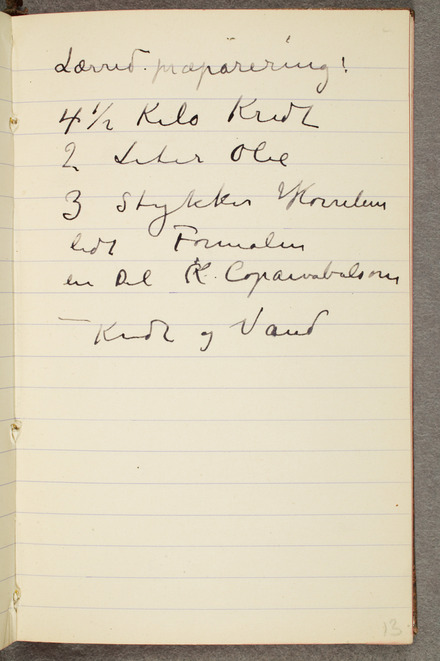 Lærred præparering!
4 1/2 Kilo Kridt
2 Liter Olie
3 Stykker Kornlim
lidt Formalin
en Del K. Copaivabalsom
— Kridt og Vand
13